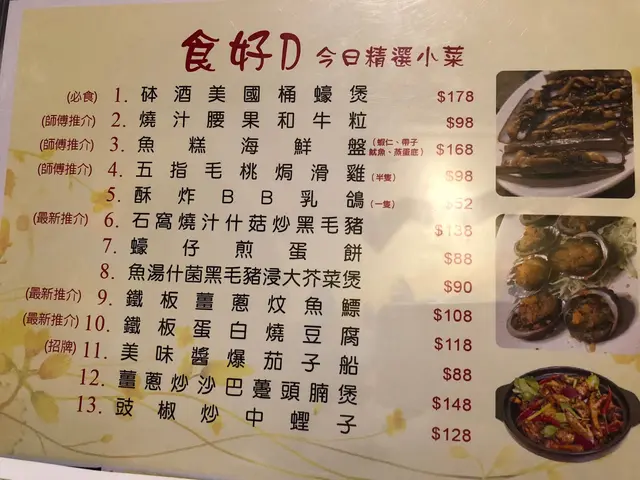 食好D 今日精選小菜
(必食) 1. 砵酒美國桶蠔煲 $178
(師傅推介) 2. 燒汁腰果和牛粒 $98
(師傅推介) 3. 魚糕海鮮盤 (蝦仁、帶子 魷魚、蒸蛋底) $168
(師傅推介) 4. 五指毛桃焗滑雞 (半隻) $98
5. 酥炸BB乳鴿 (一隻) $52
(最新推介) 6. 石窩燒汁什菇炒黑毛豬 $138
7. 蠔仔煎蛋餅 $88
8. 魚湯什菌黑毛豬浸大芥菜煲 $90
(最新推介) 9. 鐵板薑蔥炆魚鰾 $108
(最新推介) 10. 鐵板蛋白燒豆腐 $118
(招牌) 11. 美味醬爆茄子船 $88
12. 薑蔥炒沙巴躉頭腩煲 $148
13. 豉椒炒中蟶子 $128